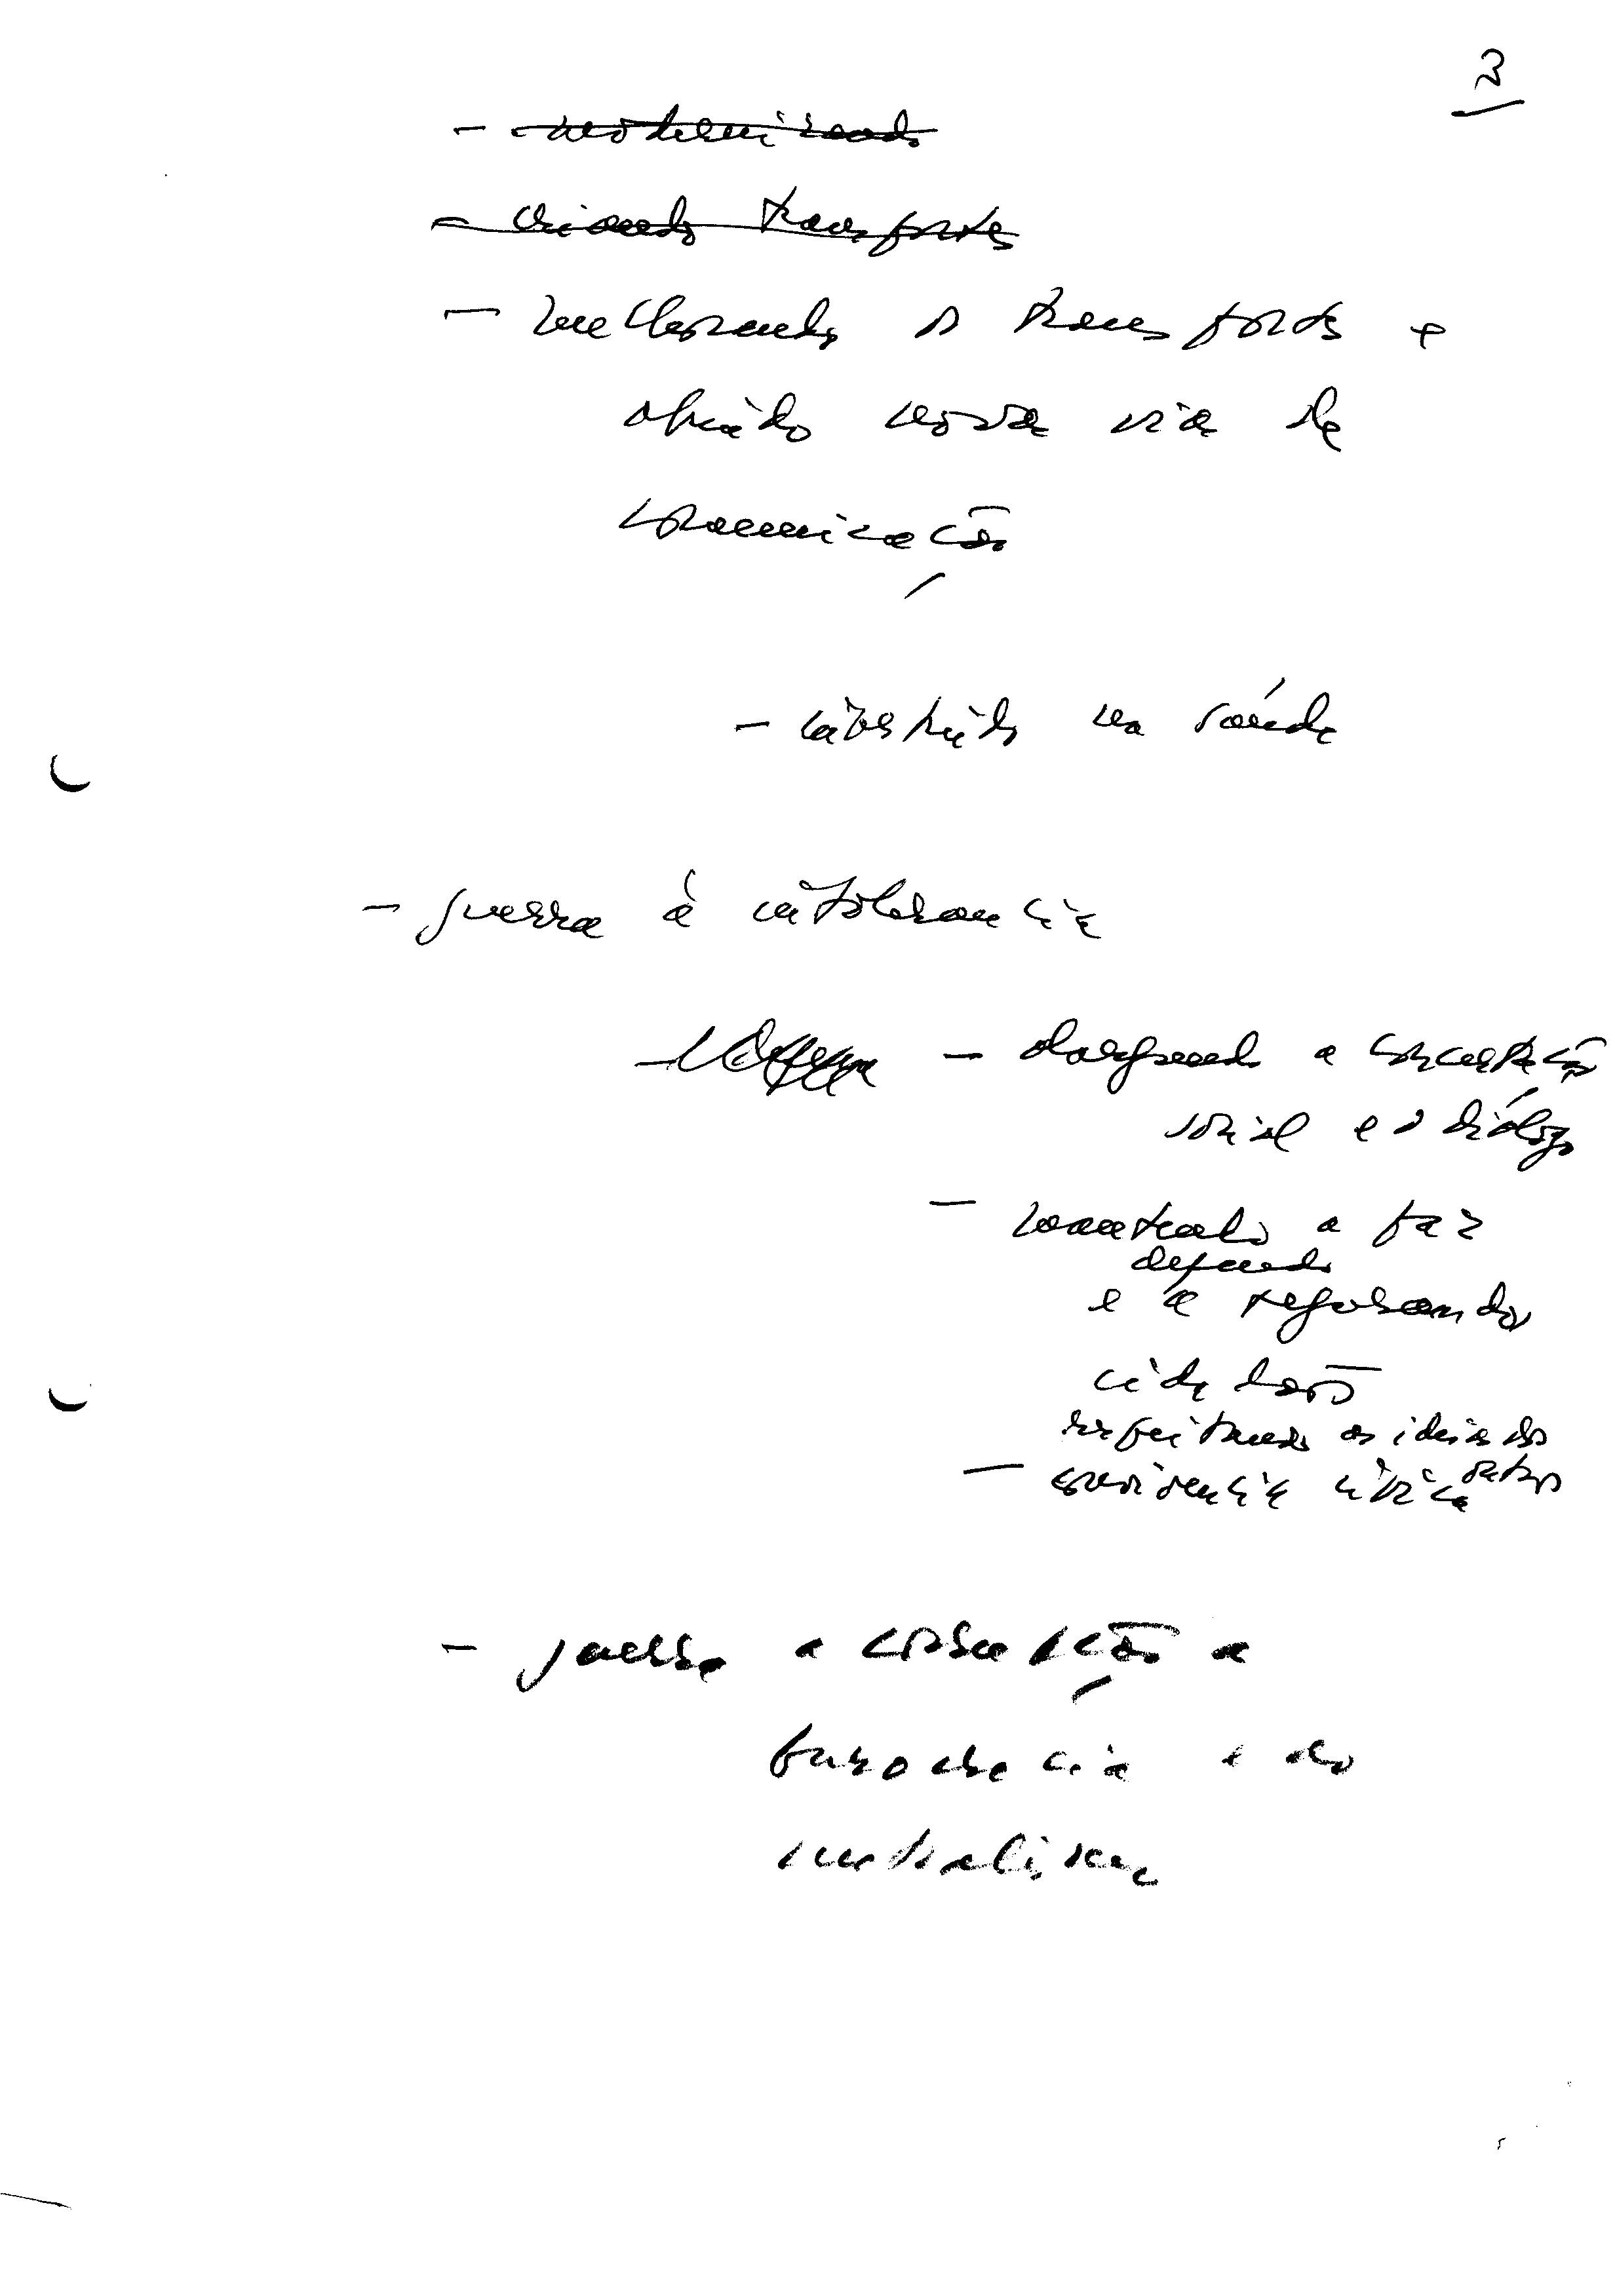 3
- modernizando
- criando transportes
- melhorando o transporte e
abrindo nova via de
comunicação
- investindo na saúde
- guerra à intolerância
- alargando a concertação
social e o diálogo
- mantendo a paz
defendendo
e a segurando
cidadão
respeitando as ideias dos
outros
- convivência cívica
- guerra a corrupção a
burocracia e do
centralismo